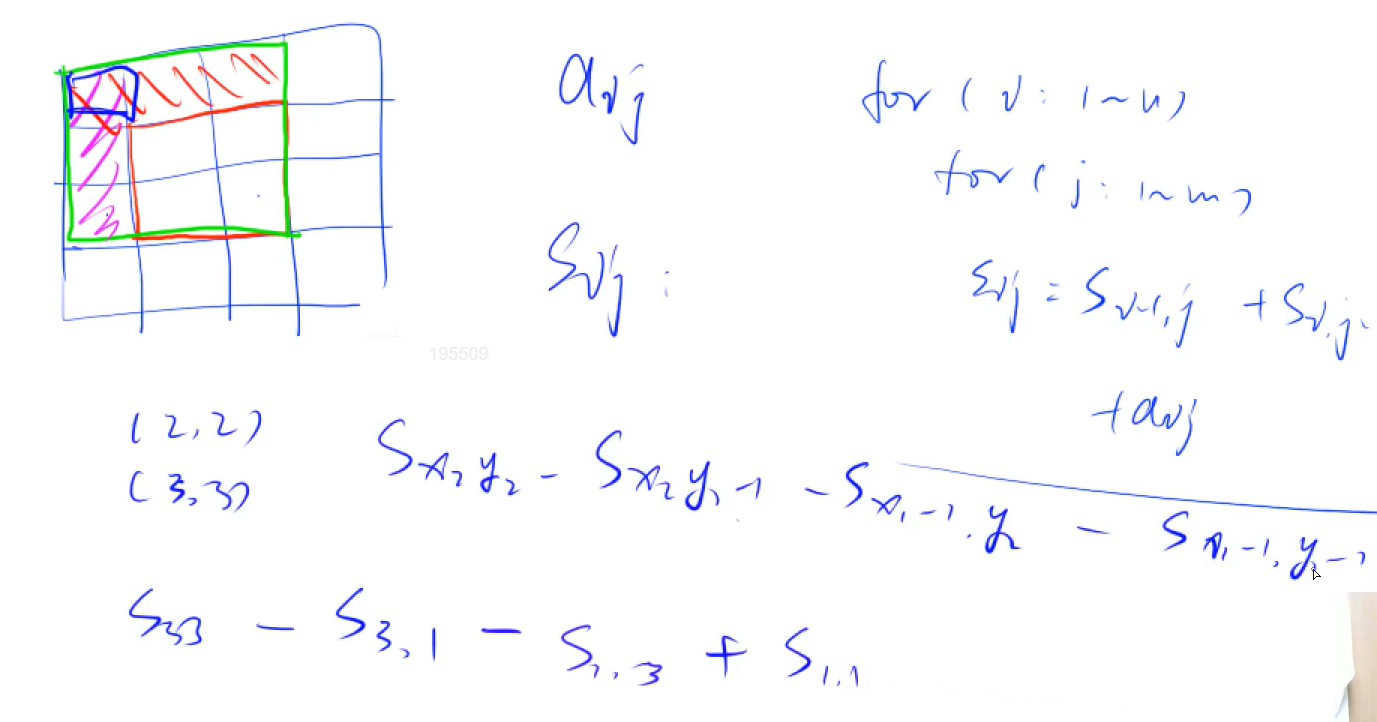 aij
for ( i : 1~n)
for ( j : 1~m)
Sij :
Sij = Si-1,j + Si,j-
+ aij
195509
(2,2)
(3,3)
Sx2y2 - Sx2y1-1 - Sx1-1,y2 - Sx1-1,y1-1
S33 - S3,1 - S1,3 + S1,1